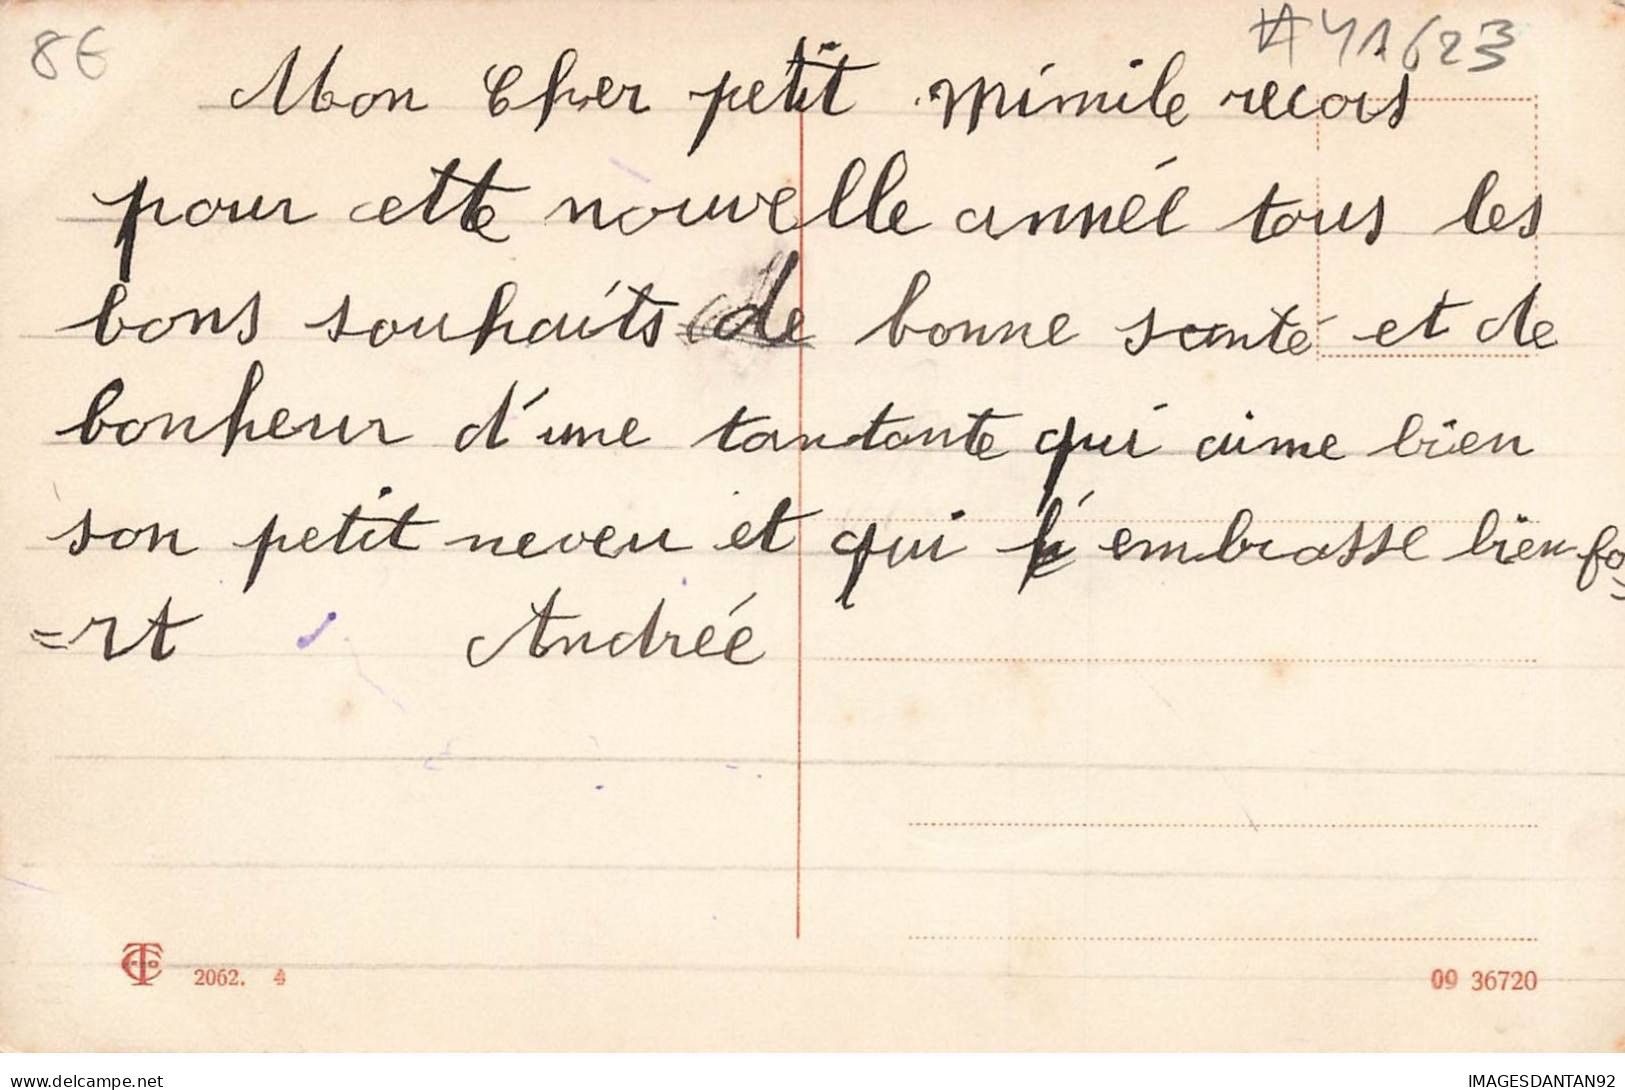 8€
#41623
Mon Cher petit Mimile recois
pour cette nouvelle année tous les
bons souhaits de bonne santé et de
bonheur d'une tantante qui aime bien
son petit neveu et qui t'embrasse bien fo=
=rt Andrée
2062. 4
09 36720
IMAGESDANTAN92
delcampe.net